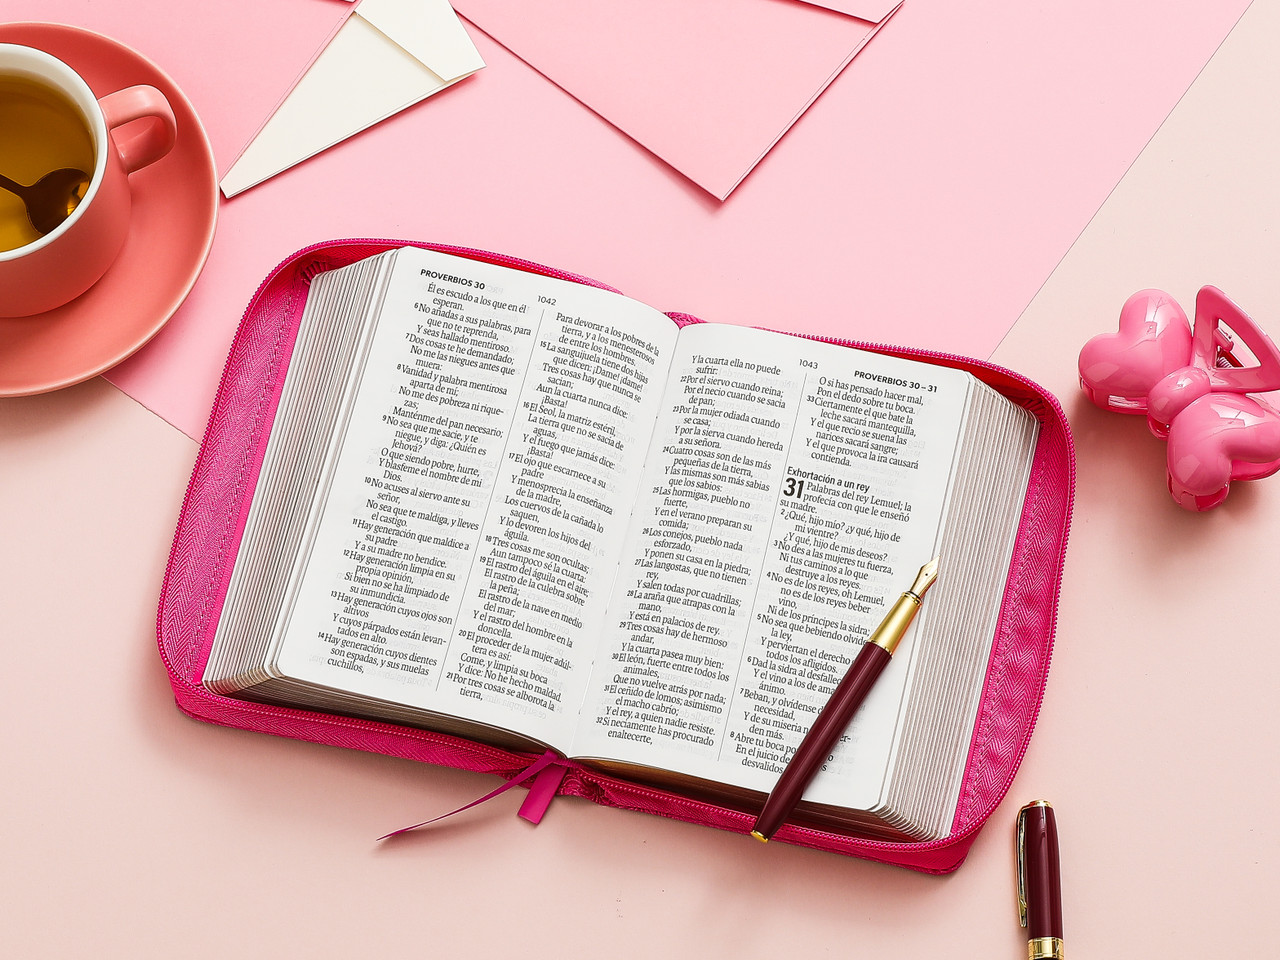 PROVERBIOS 30
1042
Él es escudo a los que en él
esperan.
6 No añadas a sus palabras, para
que no te reprenda,
Y seas hallado mentiroso.
7 Dos cosas te he demandado;
No me las niegues antes que
muera:
8 Vanidad y palabra mentirosa
aparta de mí;
No me des pobreza ni rique-
zas;
Manténme del pan necesario;
9 No sea que me sacie, y te
niegue, y diga: ¿Quién es
Jehová?
O que siendo pobre, hurte,
Y blasfeme el nombre de mi
Dios.
10 No acuses al siervo ante su
señor,
No sea que te maldiga, y lleves
el castigo.
11 Hay generación que maldice a
su padre
Y a su madre no bendice.
12 Hay generación limpia en su
propia opinión,
Si bien no se ha limpiado de
su inmundicia.
13 Hay generación cuyos ojos son
altivos
Y cuyos párpados están levan-
tados en alto.
14 Hay generación cuyos dientes
son espadas, y sus muelas
cuchillos,
Para devorar a los pobres de la
tierra, y a los menesterosos
de entre los hombres.
15 La sanguijuela tiene dos hijas
que dicen: ¡Dame! ¡dame!
Tres cosas hay que nunca se
sacian;
Aun la cuarta nunca dice:
¡Basta!
16 El Seol, la matriz estéril,
La tierra que no se sacia de
aguas,
Y el fuego que jamás dice:
¡Basta!
17 El ojo que escarnece a su
padre
Y menosprecia la enseñanza
de la madre,
Los cuervos de la cañada lo
saquen,
Y lo devoren los hijos del
águila.
18 Tres cosas me son ocultas;
Aun tampoco sé la cuarta:
19 El rastro del águila en el aire;
El rastro de la culebra sobre
la peña;
El rastro de la nave en medio
del mar;
Y el rastro del hombre en la
doncella.
20 El proceder de la mujer adúl-
tera es así:
Come, y limpia su boca
Y dice: No he hecho maldad.
21 Por tres cosas se alborota la
tierra,
1043
PROVERBIOS 30 – 31
Y la cuarta ella no puede
sufrir:
22 Por el siervo cuando reina;
Por el necio cuando se sacia
de pan;
23 Por la mujer odiada cuando
se casa;
Y por la sierva cuando hereda
a su señora.
24 Cuatro cosas son de las más
pequeñas de la tierra,
Y las mismas son más sabias
que los sabios:
25 Las hormigas, pueblo no
fuerte,
Y en el verano preparan su
comida;
26 Los conejos, pueblo nada
esforzado,
Y ponen su casa en la piedra;
27 Las langostas, que no tienen
rey,
Y salen todas por cuadrillas;
28 La araña que atrapas con la
mano,
Y está en palacios de rey.
29 Tres cosas hay de hermoso
andar,
Y la cuarta pasea muy bien:
30 El león, fuerte entre todos los
animales,
Que no vuelve atrás por nada;
31 El ceñido de lomos; asimismo
el macho cabrío;
Y el rey, a quien nadie resiste.
32 Si neciamente has procurado
enaltecerte,
O si has pensado hacer mal,
Pon el dedo sobre tu boca.
33 Ciertamente el que bate la
leche sacará mantequilla,
Y el que recio se suena las
narices sacará sangre;
Y el que provoca la ira causará
contienda.
Exhortación a un rey
31 Palabras del rey Lemuel; la
profecía con que le enseñó
su madre.
2 ¿Qué, hijo mío? ¿y qué, hijo de
mi vientre?
¿Y qué, hijo de mis deseos?
3 No des a las mujeres tu fuerza,
Ni tus caminos a lo que
destruye a los reyes.
4 No es de los reyes, oh Lemuel,
no es de los reyes beber
vino,
Ni de los príncipes la sidra;
5 No sea que bebiendo olviden
la ley,
Y perviertan el derecho
todos los afligidos.
6 Dad la sidra al desfallec
Y el vino a los de ama
ánimo.
7 Beban, y olvídense d
necesidad,
Y de su miseria n er-
den más.
8 Abre tu boca po o
En el juicio de s
desvalidos.